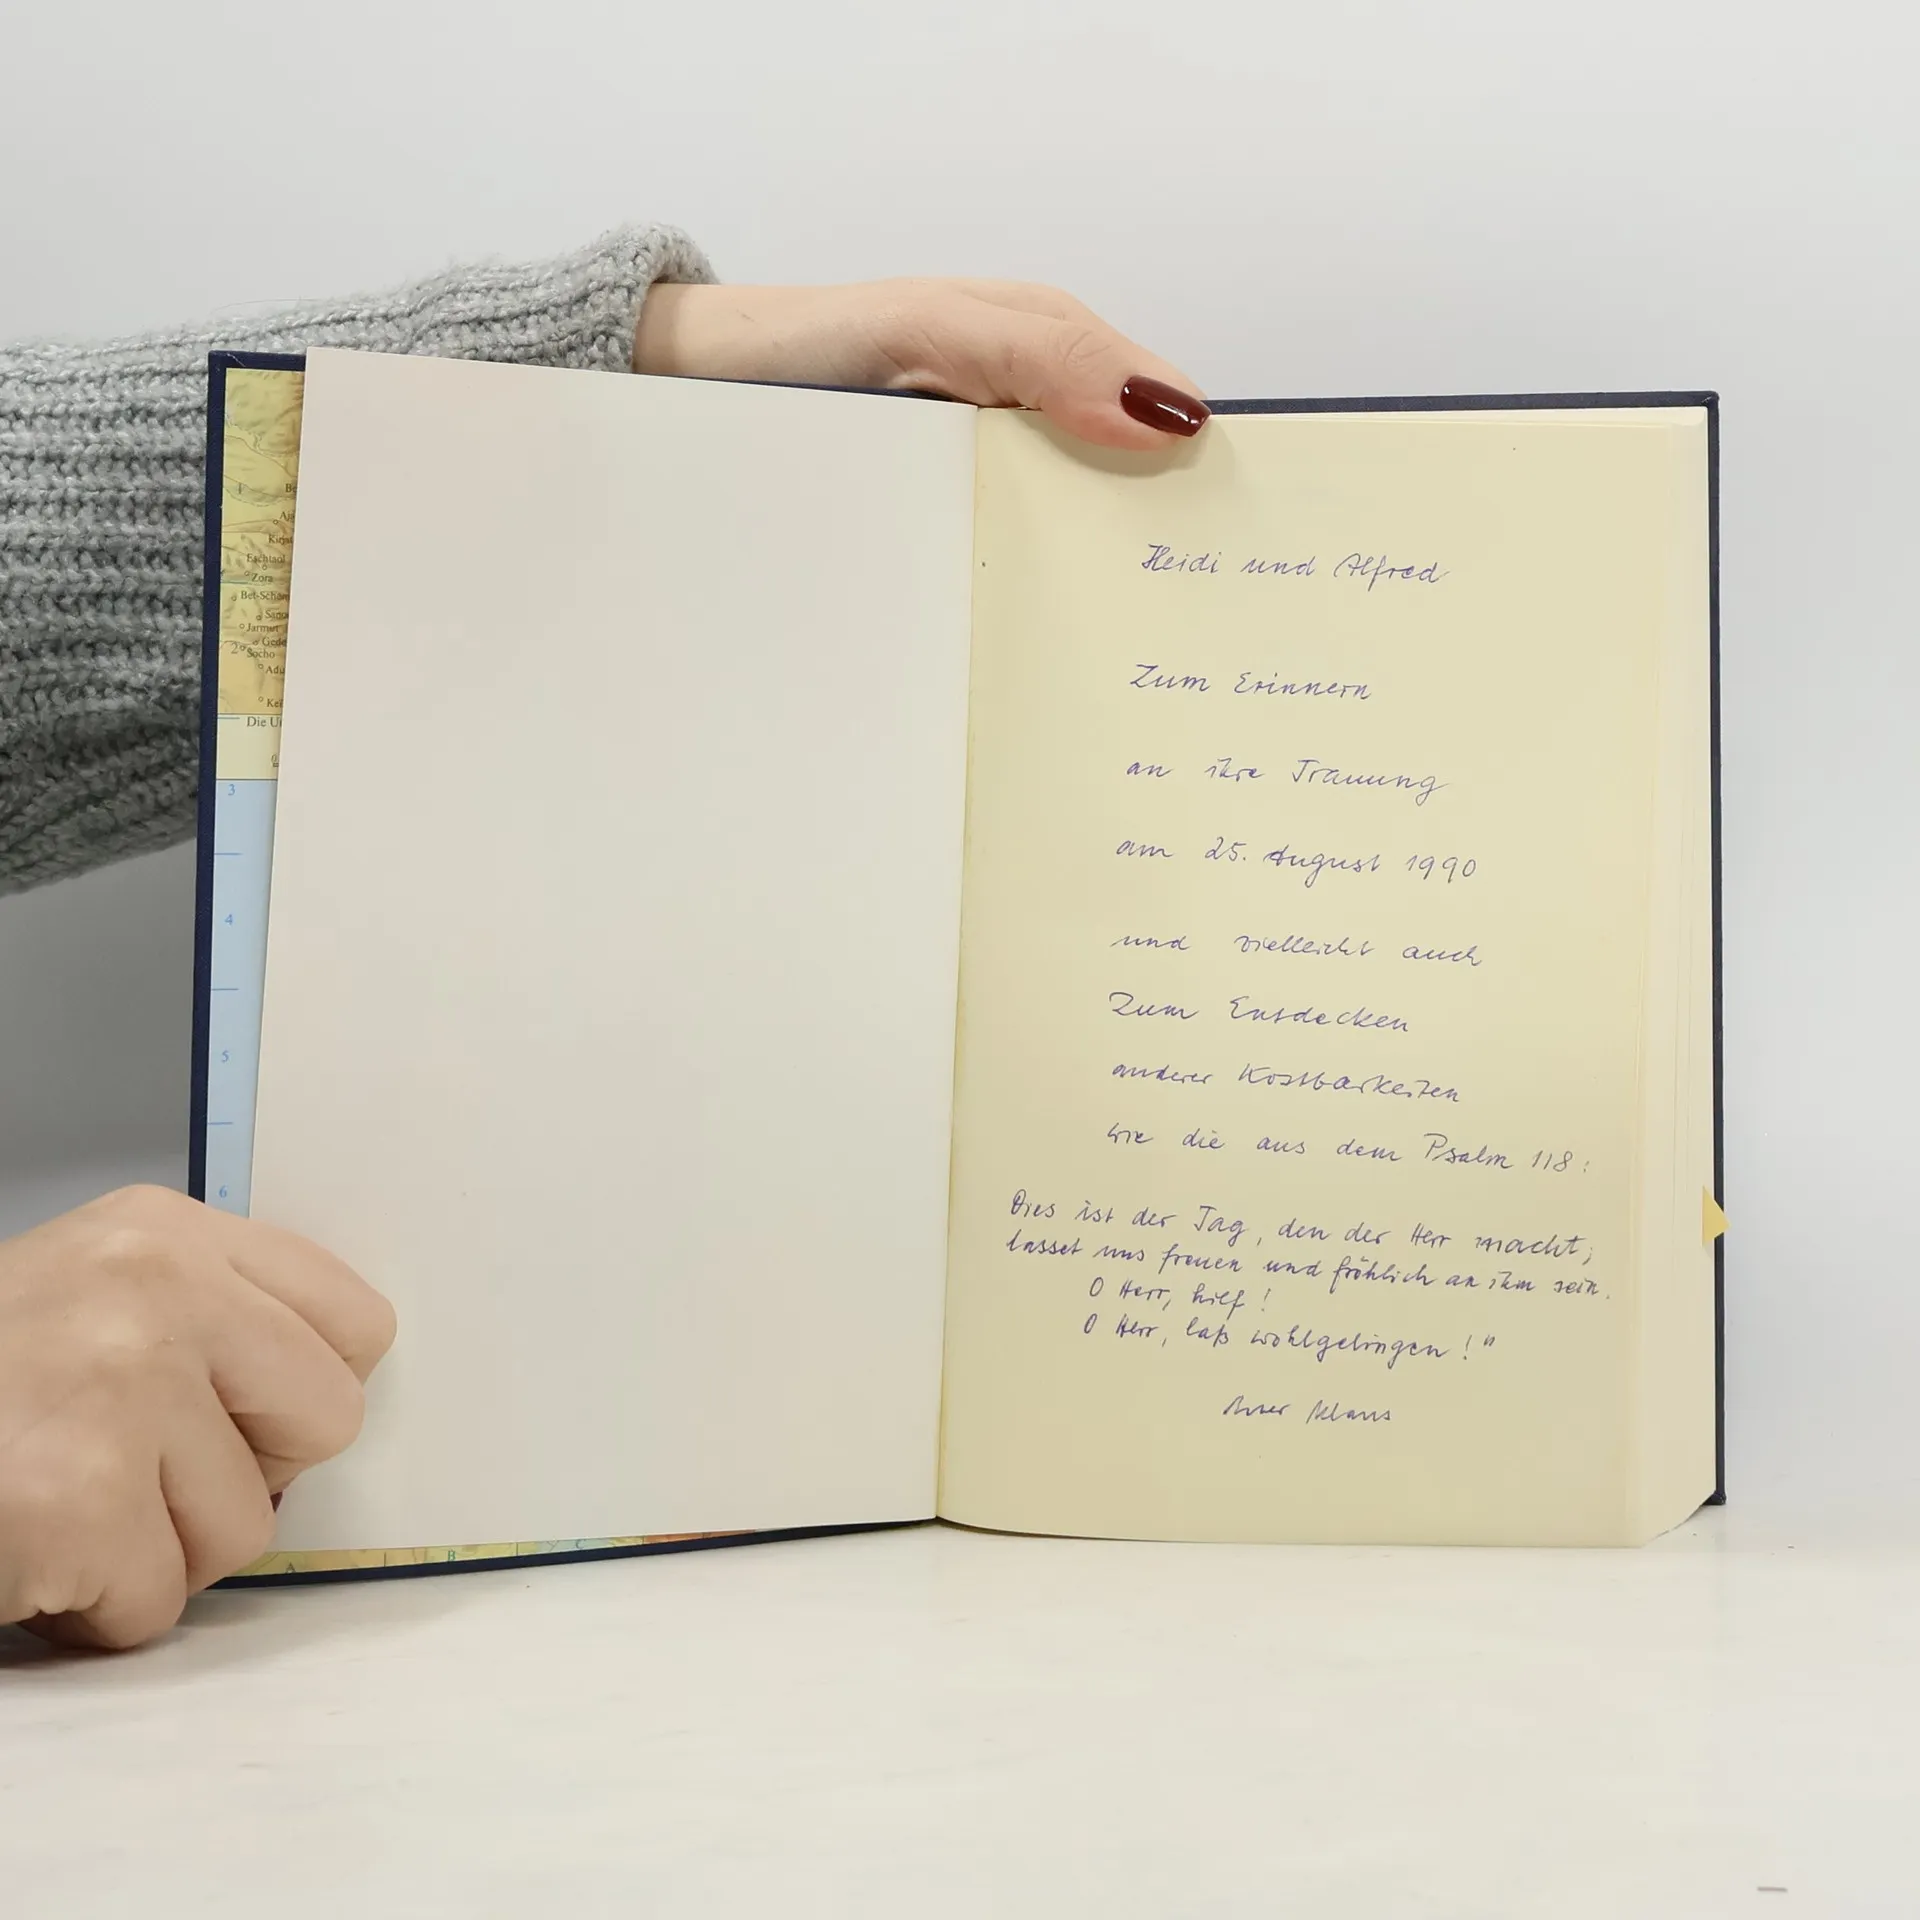 1
Eschtaol
Zora
Bet-Schem
Jarmut
2
Socho
Adu
3
4
5
6
A
B
C
Heidi und Alfred
Zum Erinnern
an ihre Trauung
am 25. August 1990
und vielleicht auch
Zum Entdecken
anderer Kostbarkeiten
wie die aus dem Psalm 118:
Dies ist der Tag, den der Herr macht;
lasset uns freuen und fröhlich an ihm sein.
O Herr, hilf!
O Herr, laß wohlgelingen!"
Klaus